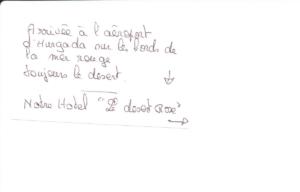 Arrivée à l'aéroport
d'Hurgada sur les bords de
la mer rouge
toujours le desert.
Notre Hotel "Le desert Rose"